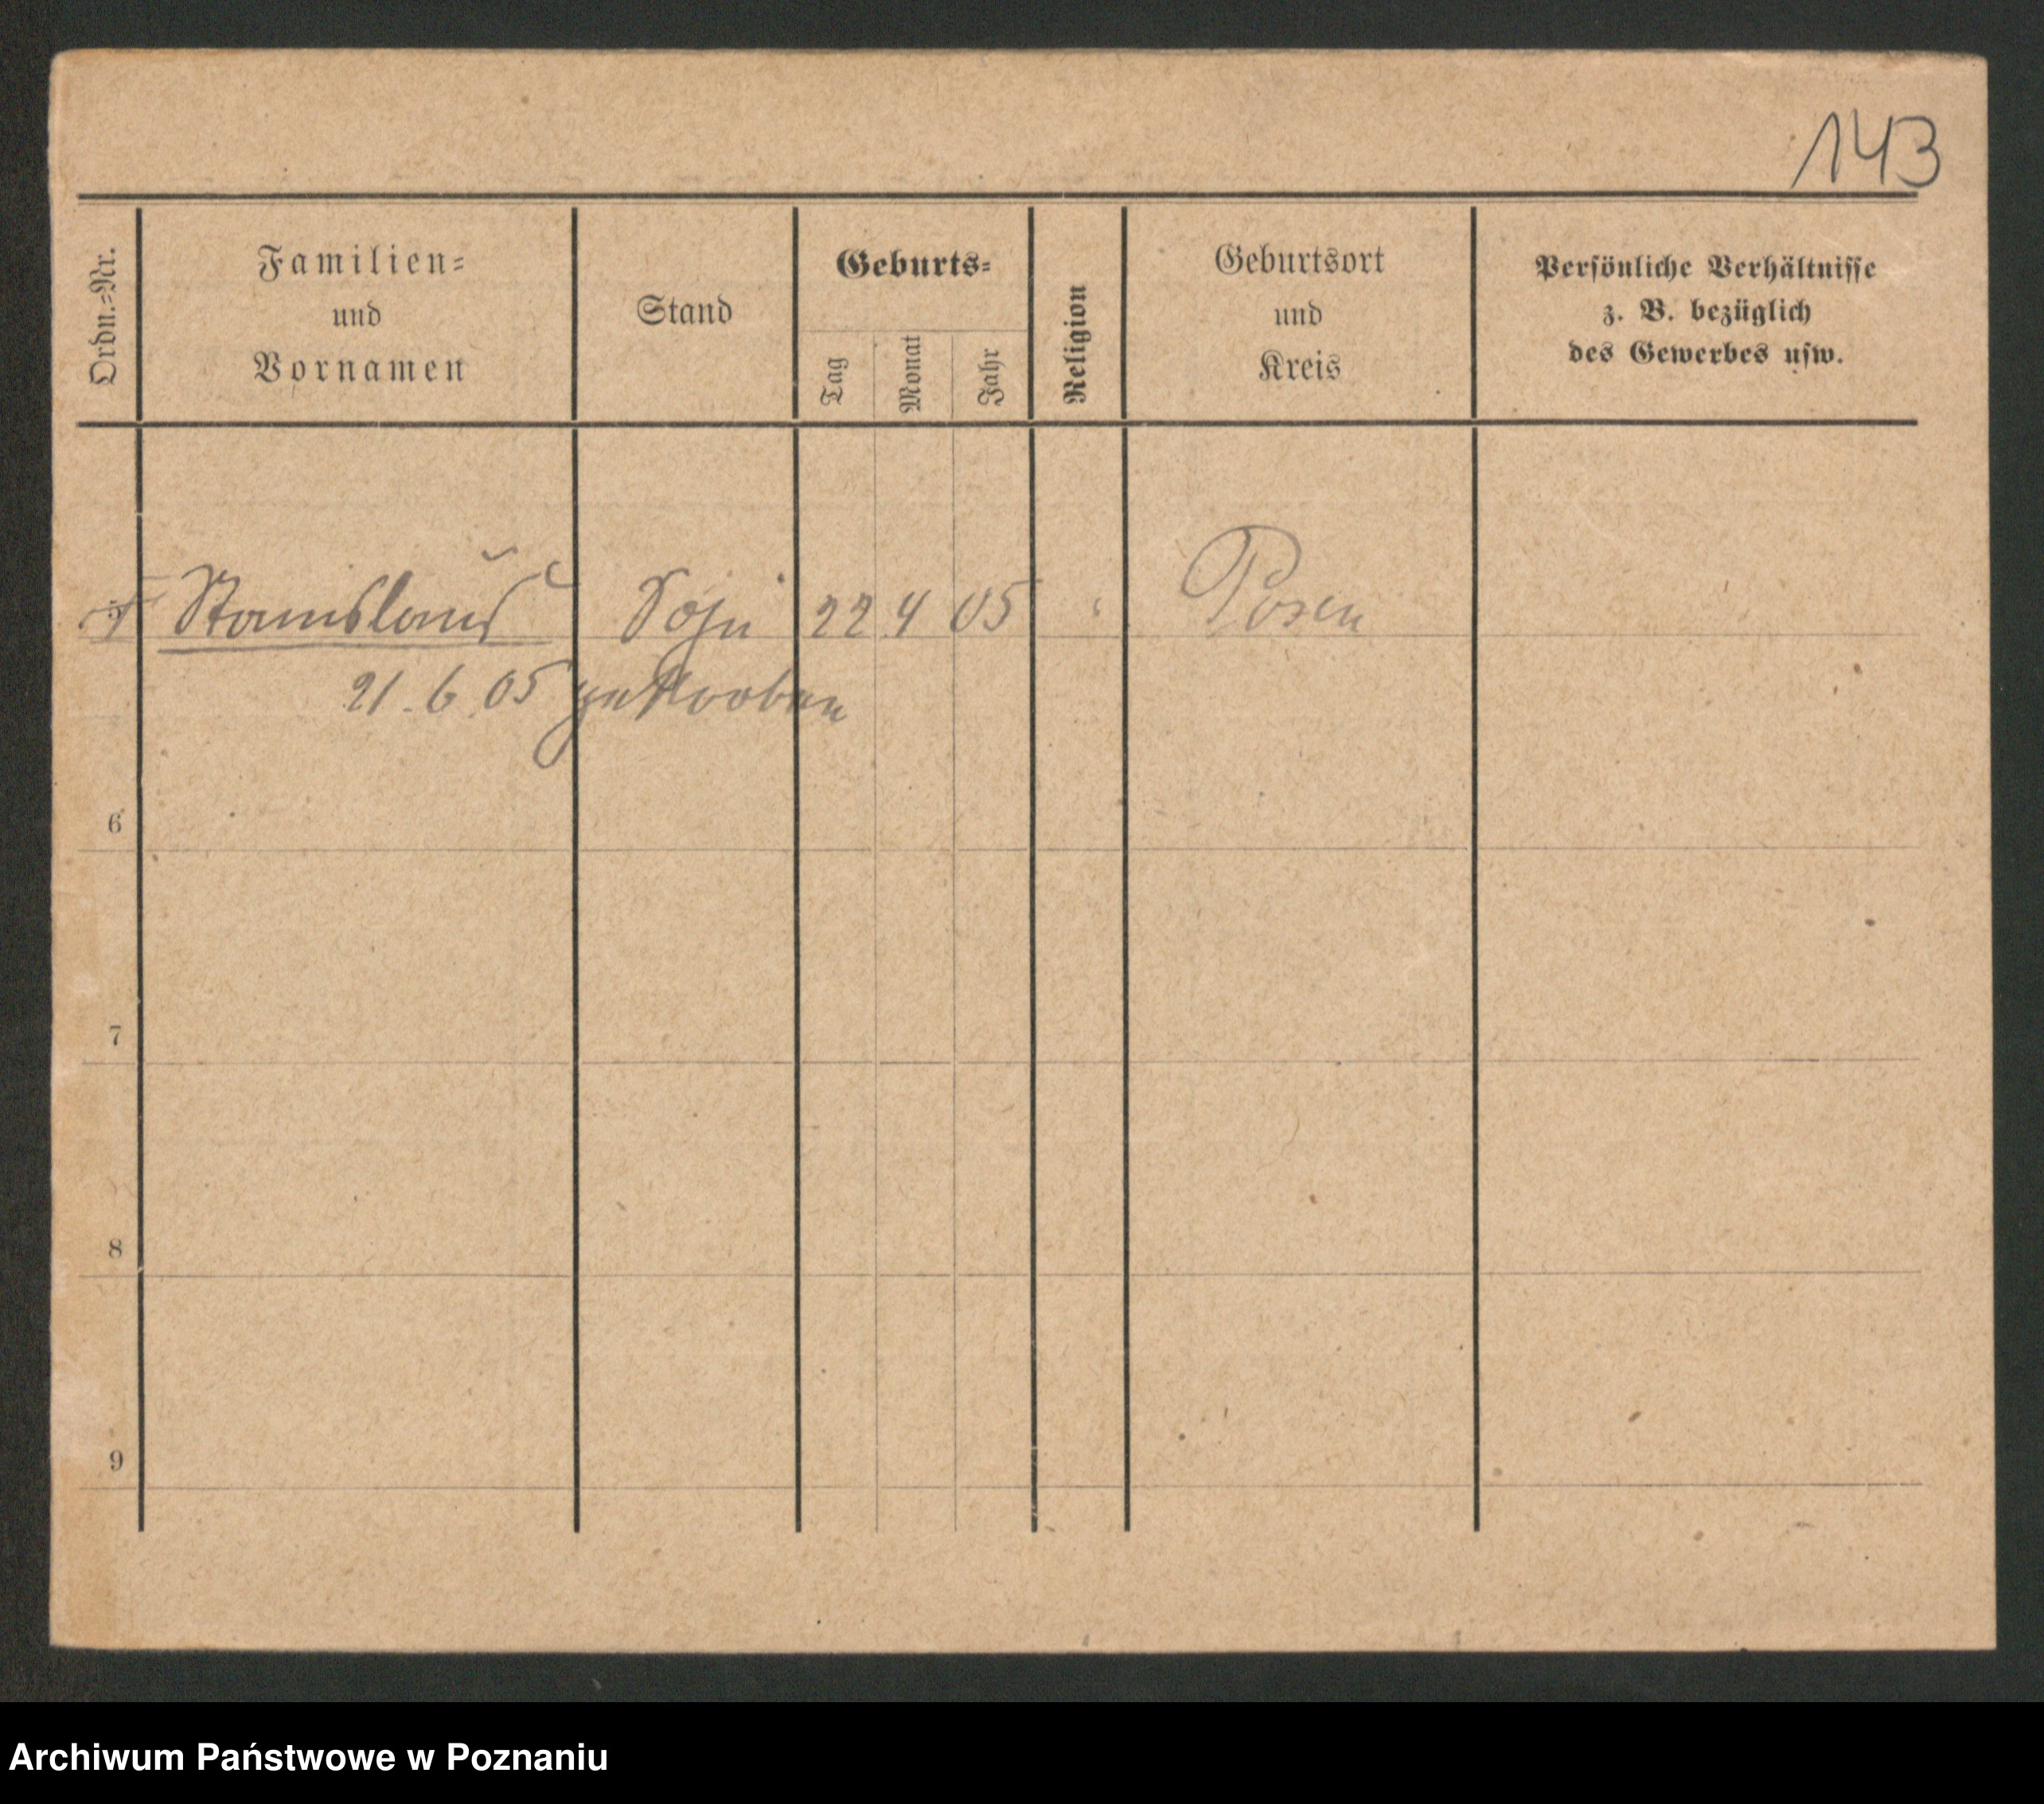 143
Ordn.-Nr.
Familien-
und
Vornamen
Stand
Geburts-
Tag
Monat
Jahr
Religion
Geburtsort
und
Kreis
Persönliche Verhältnisse
z. B. bezüglich
des Gewerbes usw.
Stanislaus Sohn 22 4 05 Posen
21. 6. 05 gestorben
6
7
8
9
Archiwum Państwowe w Poznaniu